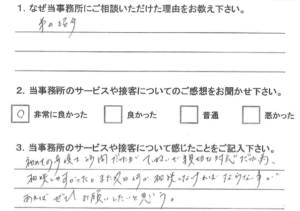 1. なぜ当事務所にご相談いただけた理由をお教え下さい。
弟の紹介
2. 当事務所のサービスや接客についてのご感想をお聞かせ下さい。
○ 非常に良かった 良かった 普通 悪かった
3. 当事務所のサービスや接客について感じたことをご記入下さい。
初めての手続で不安だったが、ていねいで親切な対応だった為、
相談しやすかった。また次の何か相談しなければならない事が
あれば ぜひ お願いしたいと思う。